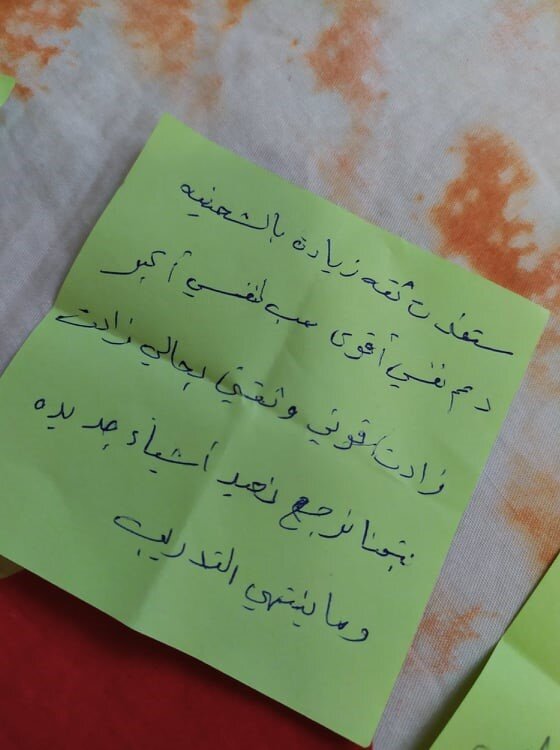 ستفدت ثقه زيادة بالشخصيه
دعم نفسي أقوى حب لنفسي أكبر
زادت قوتي وثقتي بحالي زادت
نرجع نعيد أشياء جديده
وما ينتهي التدريب